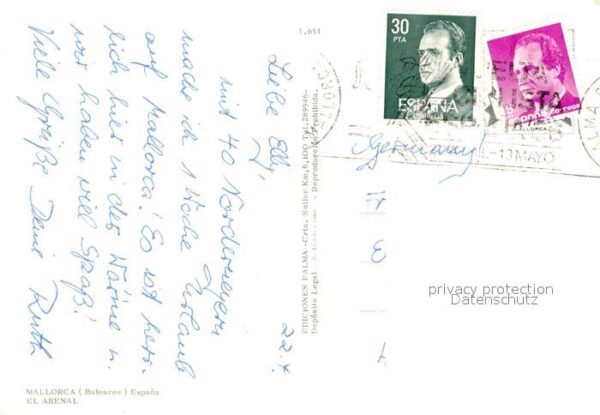 1.651
22.4.
Liebe Elly,
mit 40 Norderneyern
mache ich 1 Woche Urlaub
auf Mallorca! Es ist herr-
lich hier in der Wärme u.
wir haben viel Spaß!
Viele Grüße Deine Ruth
MALLORCA (Baleares) España
EL ARENAL
EDICIONES PALMA -Crta. Sóller Km,6,100 Tel,289946-
Depósito Legal - Reproducción Prohibida.
30
PTA
ESPAÑA
correos
MALLORCA
-13 MAYO
PALMA
Germany
privacy protection
Datenschutz